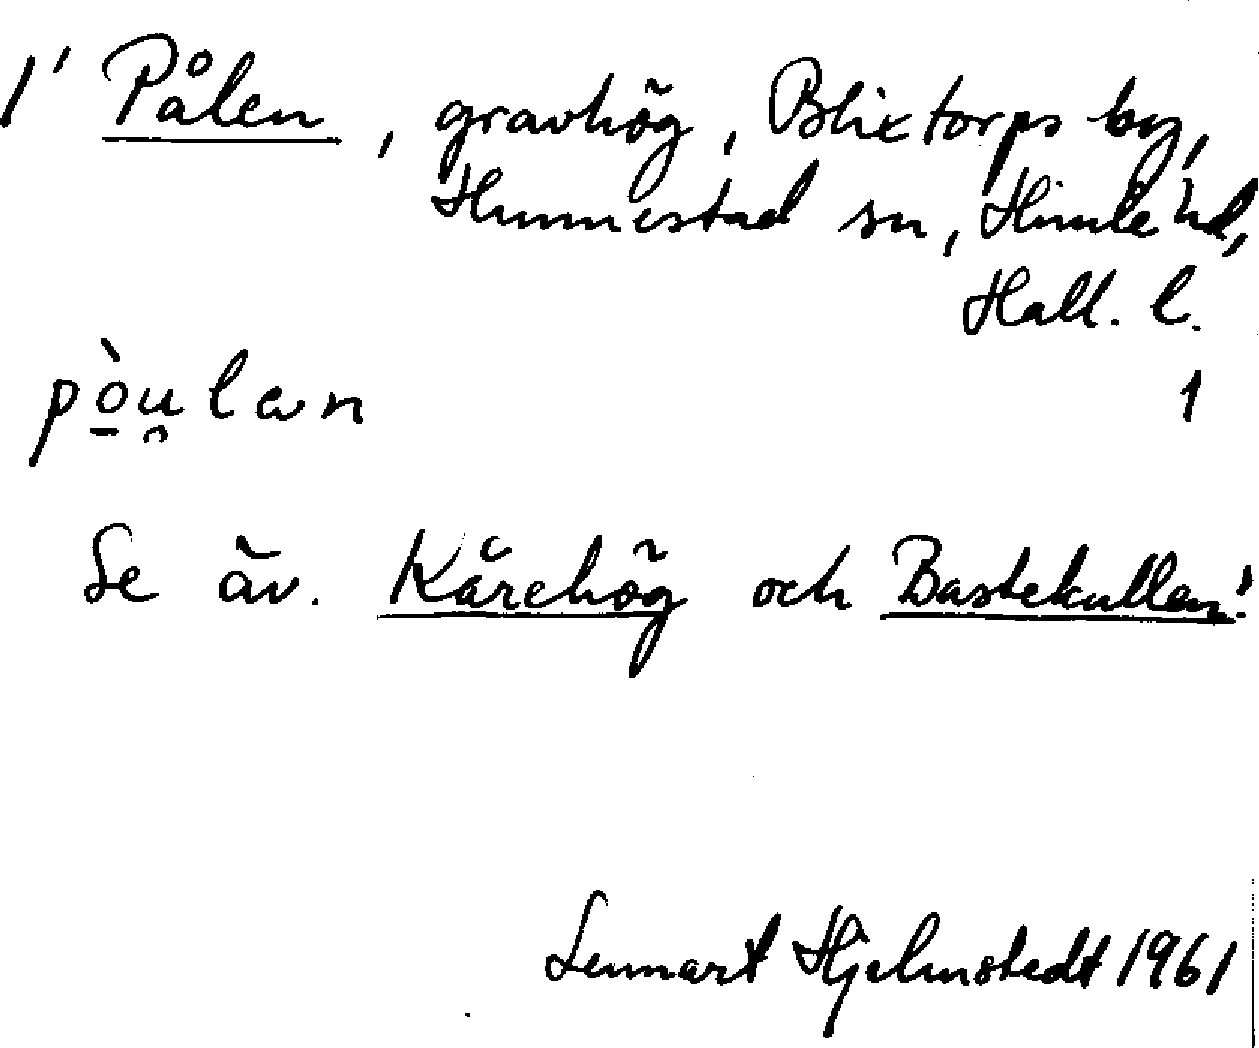 1' Pålen, gravhög, Blixtorps by,
Hunnestad sn, Himle hd,
Hall. l.
pòu̯lan 1
Se äv. Kårehög och Bastekullen!
Lennart Hjelmstedt 1961